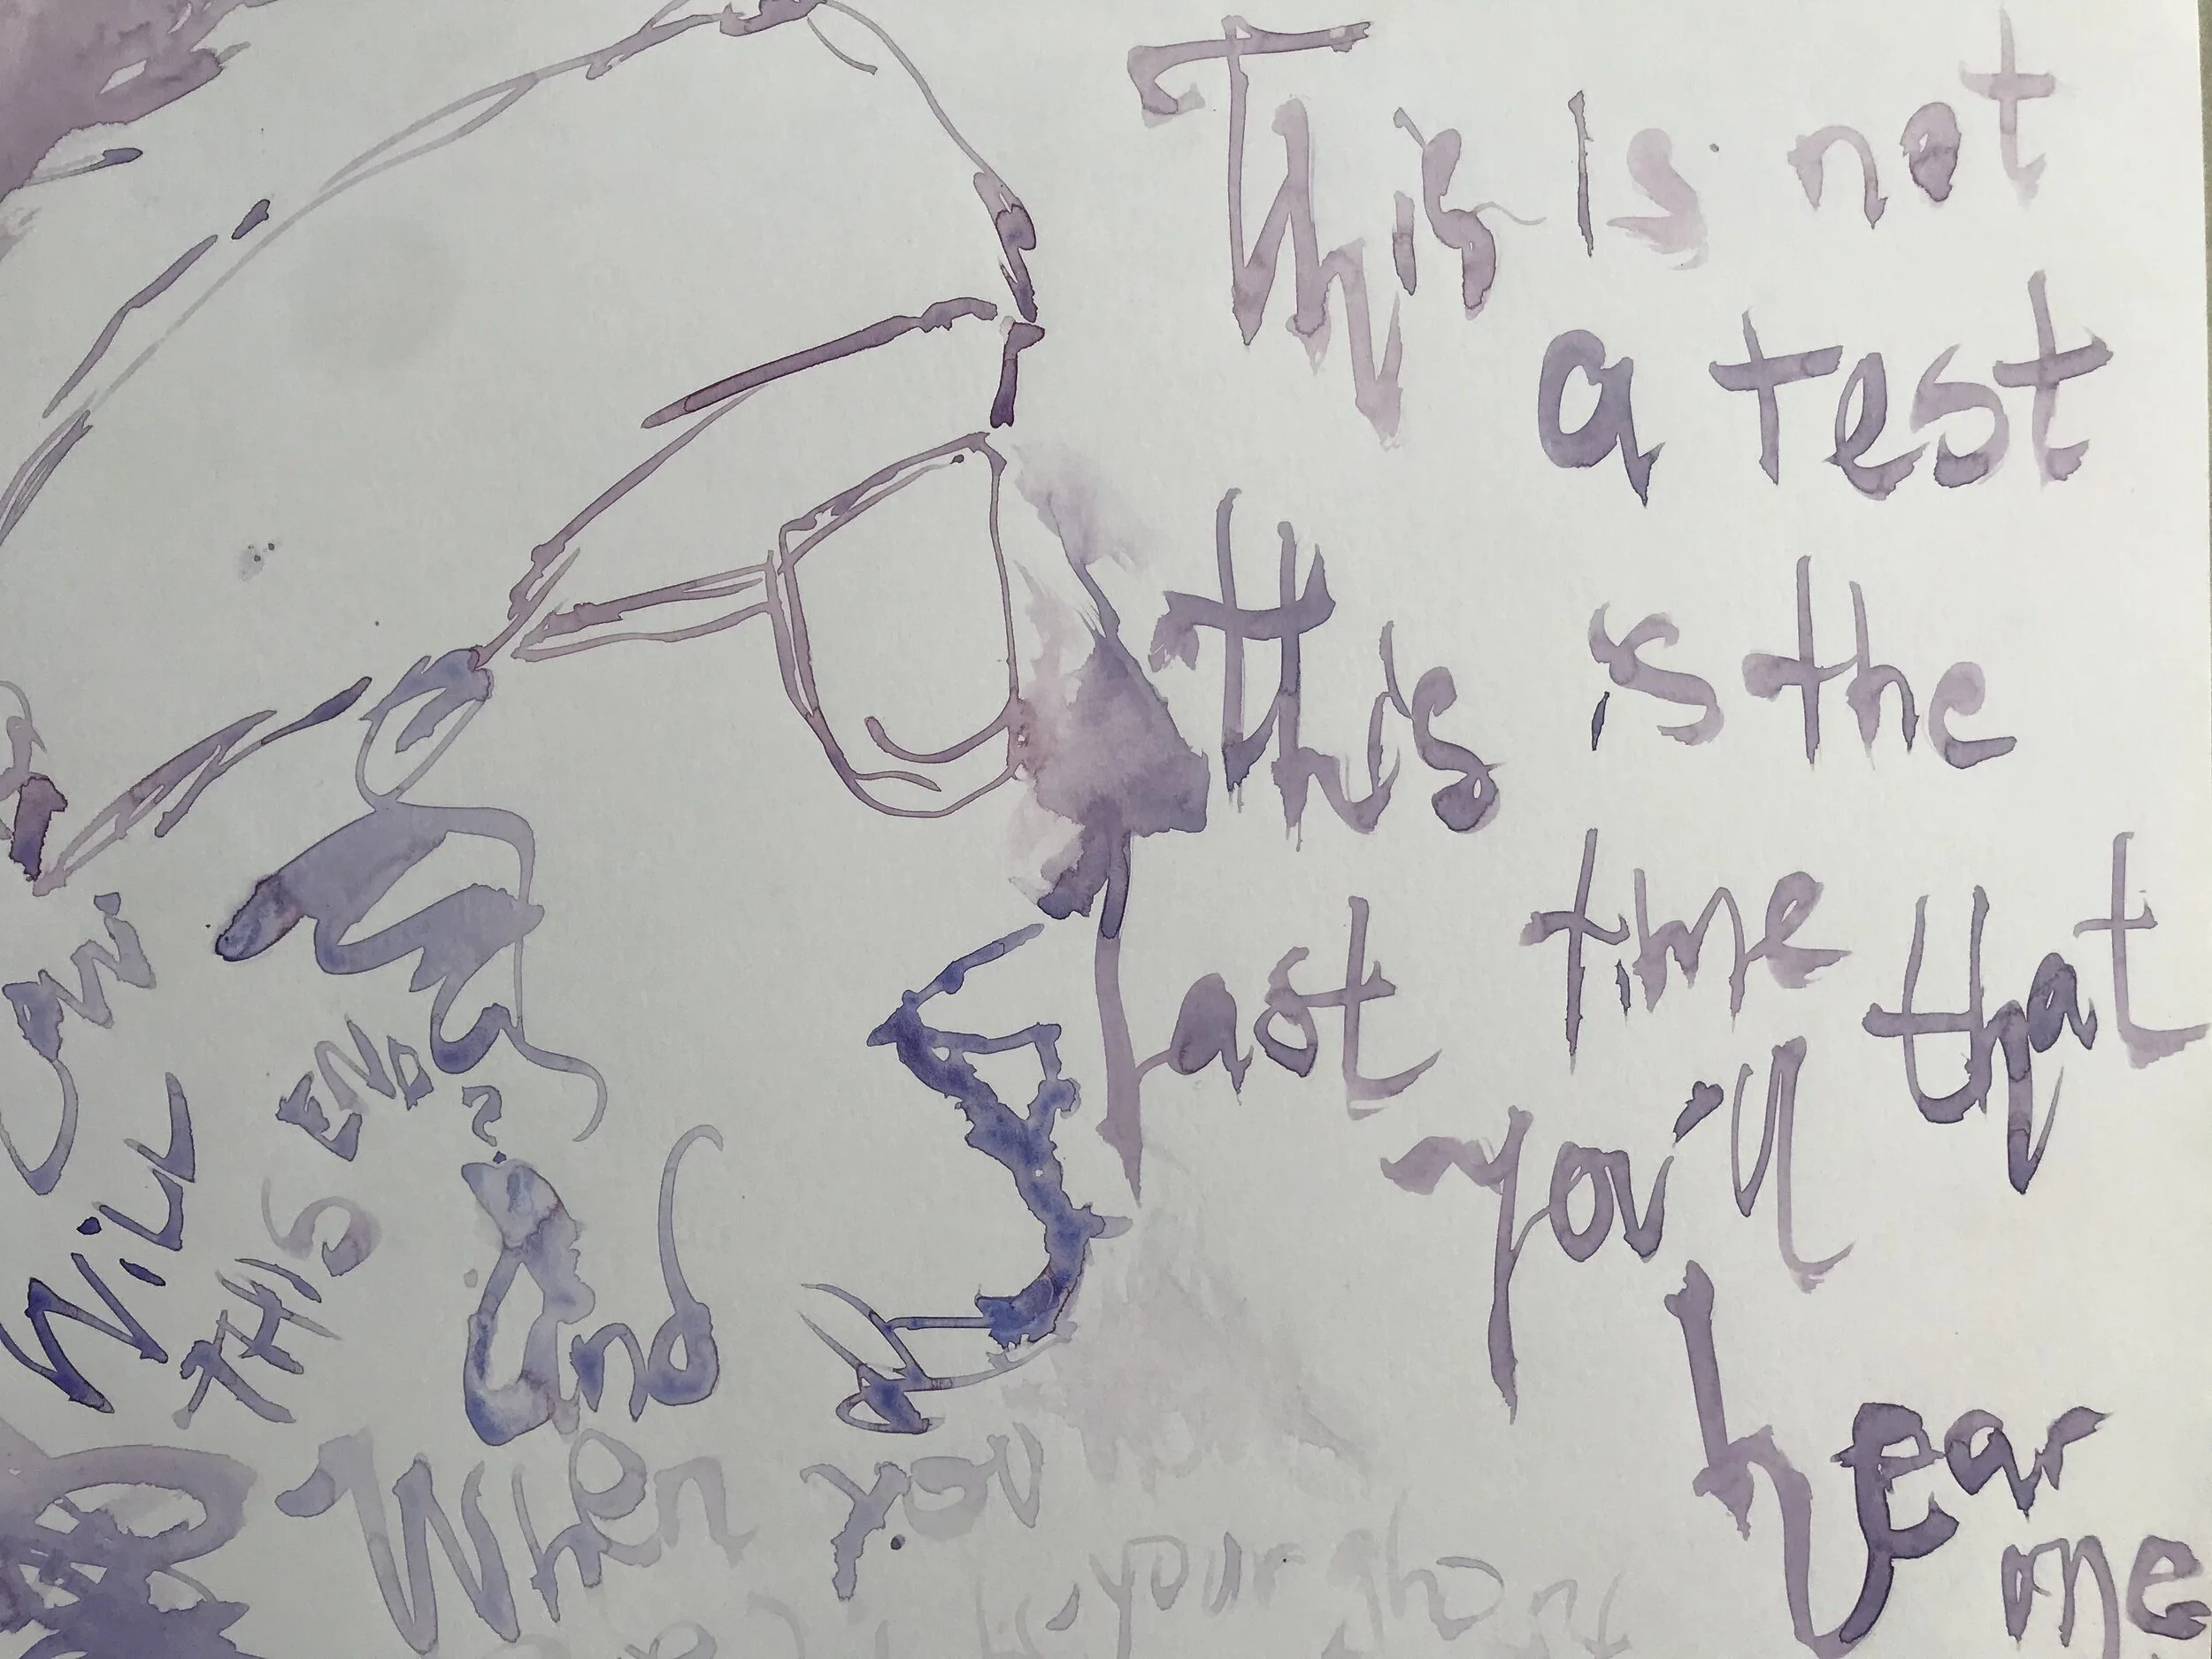 This is not
a test
this is the
last time that
you'll
hear
me
Can
WiLL
THIS END
?
And
When you
your ghost